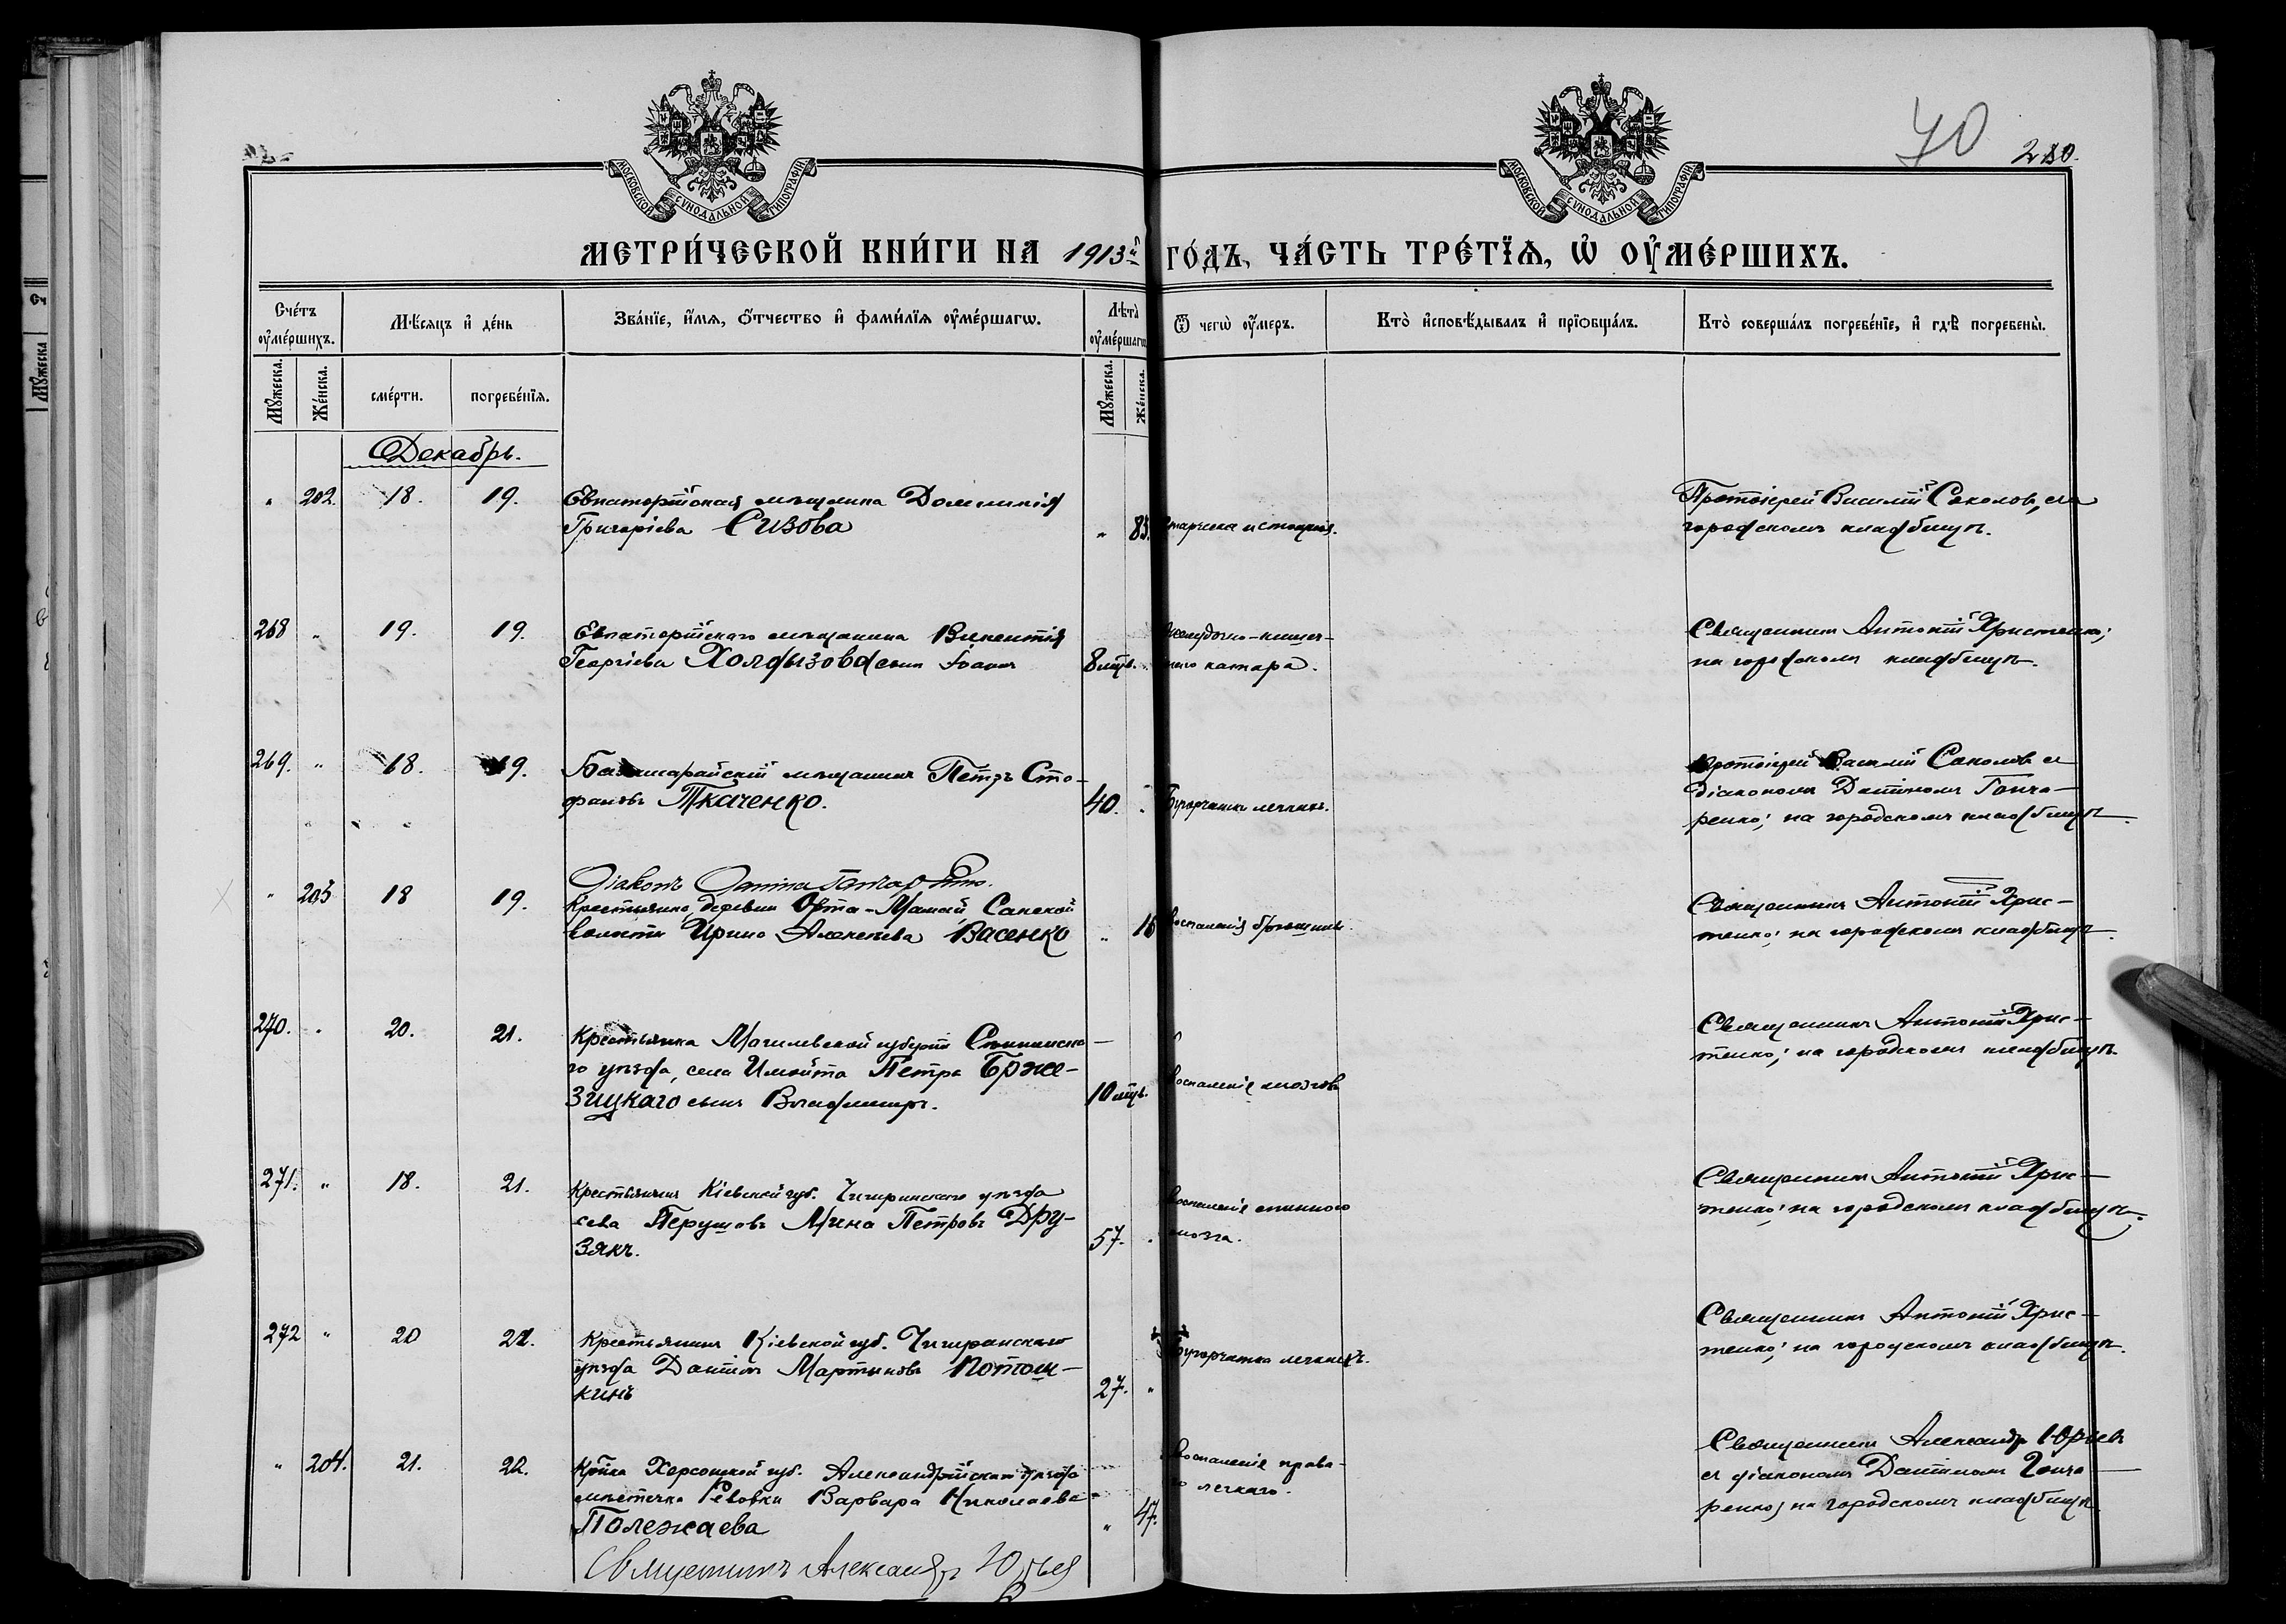 70
280.
МОСКОВСКОЙ СѴНОДАЛЬНОЙ ТИПОГРАФІИ
МОСКОВСКОЙ СѴНОДАЛЬНОЙ ТИПОГРАФІИ
МЕТРИ́ЧЕСКОЙ КНИ́ГИ НА 1913й ГО́ДЪ, ЧА́СТЬ ТРЕ́ТЇѦ, Ѡ ОУ҆МЕ́РШИХЪ.
Сче́тъ оу҆ме́ршихъ.
Мѣ́сяцъ и҆ де́нь
Зва́нїе, и҆́мѧ, ѻ҆́тчество и҆ фами́лїѧ оу҆ме́ршагѡ.
Лѣ́та оу҆ме́ршагѡ
Ѿ чегѡ̀ оу҆́меръ.
Кто̀ и҆сповѣ́дывалъ и҆ прїѻбща́лъ.
Кто̀ соверша́лъ погребе́нїе, и҆ гдѣ̀ погребены̀.
Мꙋ́жеска.
Же́нска.
сме́рти.
погребе́нїѧ.
Мꙋ́жеска.
Же́нска.
Декабрь.
" 202. 18. 19. Евпаторійская мѣщанка Домникія
Григоріева Сизова
" 83.
старческ истощенія.
Протоіерей Василій Соколов, на
городскомъ кладбищѣ.
268 " 19. 19. Евпаторійскаго мѣщанина Викентія
Георгіева Холдызова сынъ Іоаннъ
8 мѣс.
Желудочно-кишеч-
наго катара.
Священникъ Антоній Христенко;
на городскомъ кладбищѣ.
269. " 18. 19. мѣщанинъ Петръ Сте-
фановъ Ткаченко.
40.
Бугорчатка легкихъ.
Протоіерей Василій Соколовъ съ
діакономъ Даніиломъ Гонча-
ренко; на городскомъ кладбищѣ.
Діаконъ
" 203 18 19. Крестьянка деревни Орта-Мамай, Сакской
волости Ирина Алексѣева Васенко
" 16
воспаленія брюшины.
Священникъ Антоній Хрис-
тенко; на городскомъ кладбищѣ.
270. " 20. 21. Крестьянина Могилевской губерніи
го уѣзда, села Петра Брже-
зицкаго сынъ Владимиръ.
10 мѣс.
воспаленіе мозгов
Священникъ Антоній Хрис-
тенко; на городскомъ кладбищѣ.
271. " 18. 21. Крестьянинъ Кіевской губ. Чигиринскаго уѣзда
села Мина Петровъ Дру-
зякъ.
57.
воспаленіе спинного
мозга.
Священникъ Антоній Хрис-
тенко; на городскомъ кладбищѣ.
272 " 20 22. Крестьянинъ Кіевской губ. Чигиринскаго
уѣзда Даніилъ Мартыновъ Потош-
кинъ
27. "
Бугорчатка легкихъ.
Священникъ Антоній Хрис-
тенко; на городскомъ кладбищѣ.
" 204. 21. 22. Кр̃нка Херсонской губ. Александрійскаго уѣзда
мѣстечка Варвара Николаева
Полежаева
" 47.
Воспаленіе право-
го легкаго.
Священникъ Александръ Юрьевъ
съ діакономъ Даніиломъ Гонча-
ренко; на городскомъ кладбищѣ.
Священникъ Александръ Юрьев